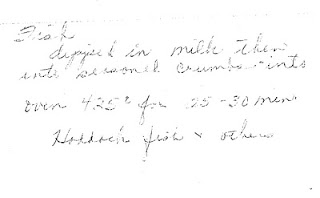 Fish
dipped in milk then
into seasoned crumbs - into
oven 425° for 25-30 mins
Haddock fish & others